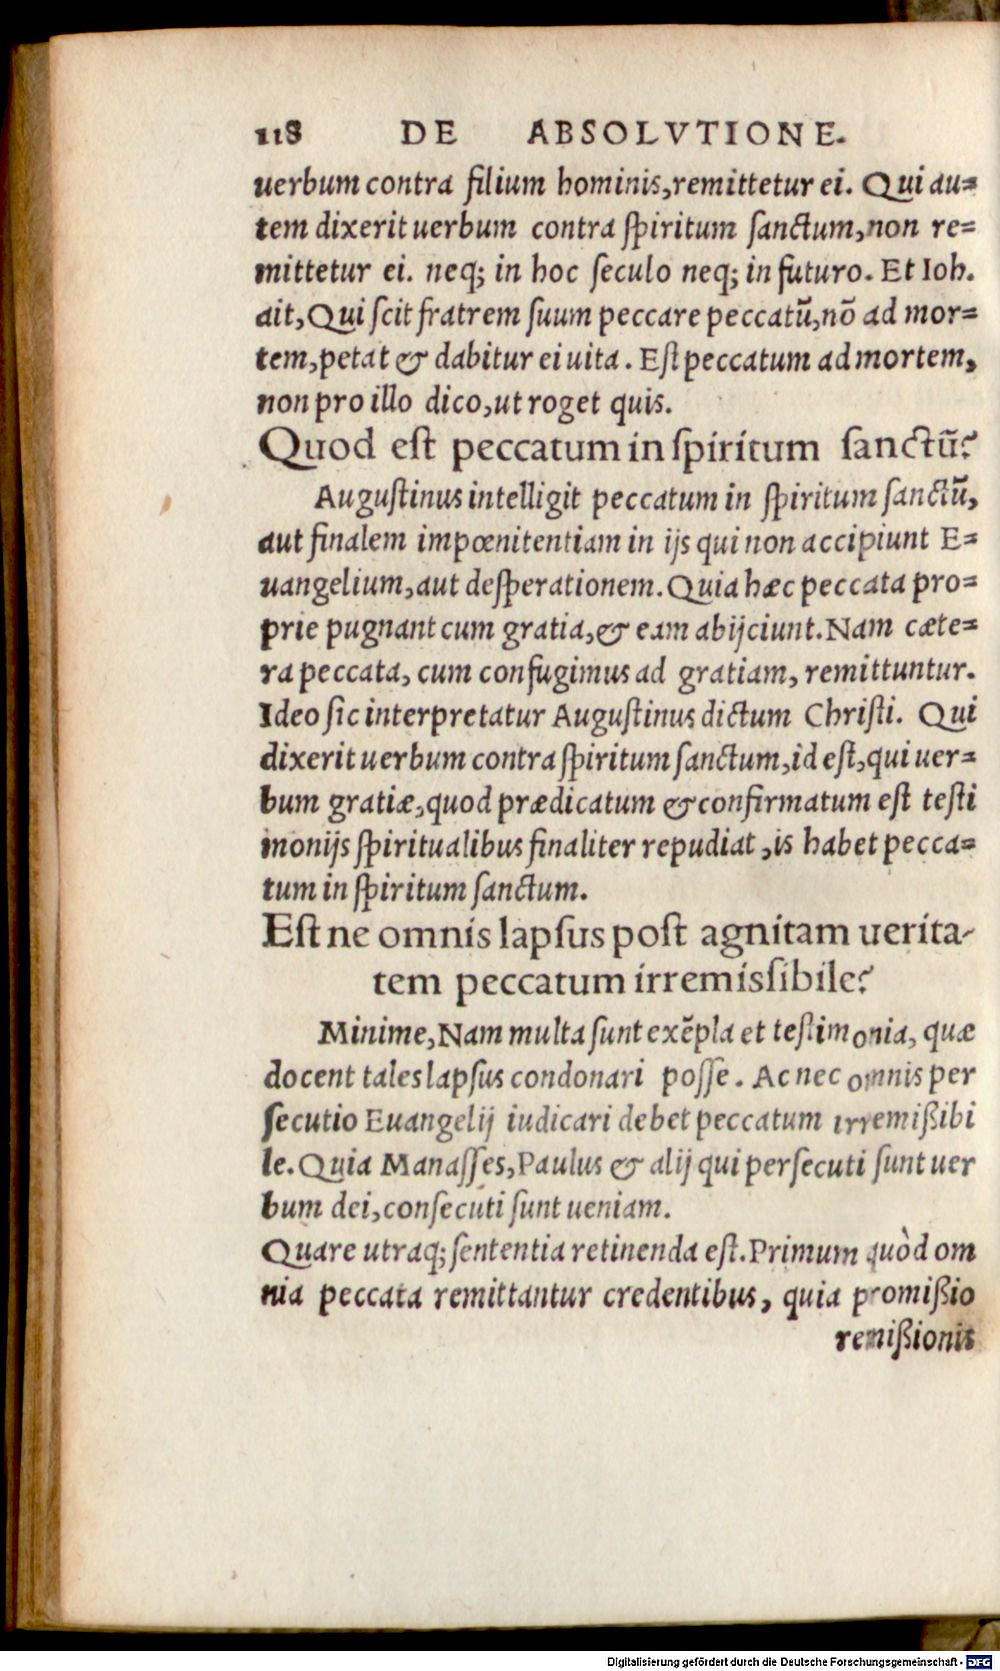 118 DE ABSOLVTIONE.
uerbum contra filium hominis, remittetur ei. Qui au=
tem dixerit uerbum contra ſpiritum ſanctum, non re=
mittetur ei. neq; in hoc ſeculo neq; in futuro. Et Ioh.
ait, Qui ſcit fratrem ſuum peccare peccatũ, nõ ad mor=
tem, petat & dabitur ei uita. Eſt peccatum ad mortem,
non pro illo dico, ut roget quis.
Quod eſt peccatum in ſpiritum ſanctũ?
Auguſtinus intelligit peccatum in ſpiritum ſanctũ,
aut finalem impœnitentiam in ijs qui non accipiunt E=
uangelium, aut deſperationem. Quia hæc peccata pro=
prie pugnant cum gratia, & eam abijciunt. Nam cæte=
ra peccata, cum confugimus ad gratiam, remittuntur.
Ideo ſic interpretatur Auguſtinus dictum Chriſti. Qui
dixerit uerbum contra ſpiritum ſanctum, id eſt, qui uer=
bum gratiæ, quod prædicatum & confirmatum eſt teſti
monijs ſpiritualibus finaliter repudiat, is habet pecca=
tum in ſpiritum ſanctum.
Eſt ne omnis lapſus poſt agnitam uerita-
tem peccatum irremiſsibile?
Minime, Nam multa ſunt exẽpla et teſtimonia, quæ
docent tales lapſus condonari poſſe. Ac nec omnis per
ſecutio Euangelij iudicari debet peccatum irremißibi
le. Quia Manaſſes, Paulus & alij qui perſecuti ſunt uer
bum dei, conſecuti ſunt ueniam.
Quare utraq; ſententia retinenda eſt. Primum quòd om
nia peccata remittantur credentibus, quia promißio
remißionis
Digitalisierung gefördert durch die Deutsche Forschungsgemeinschaft - DFG